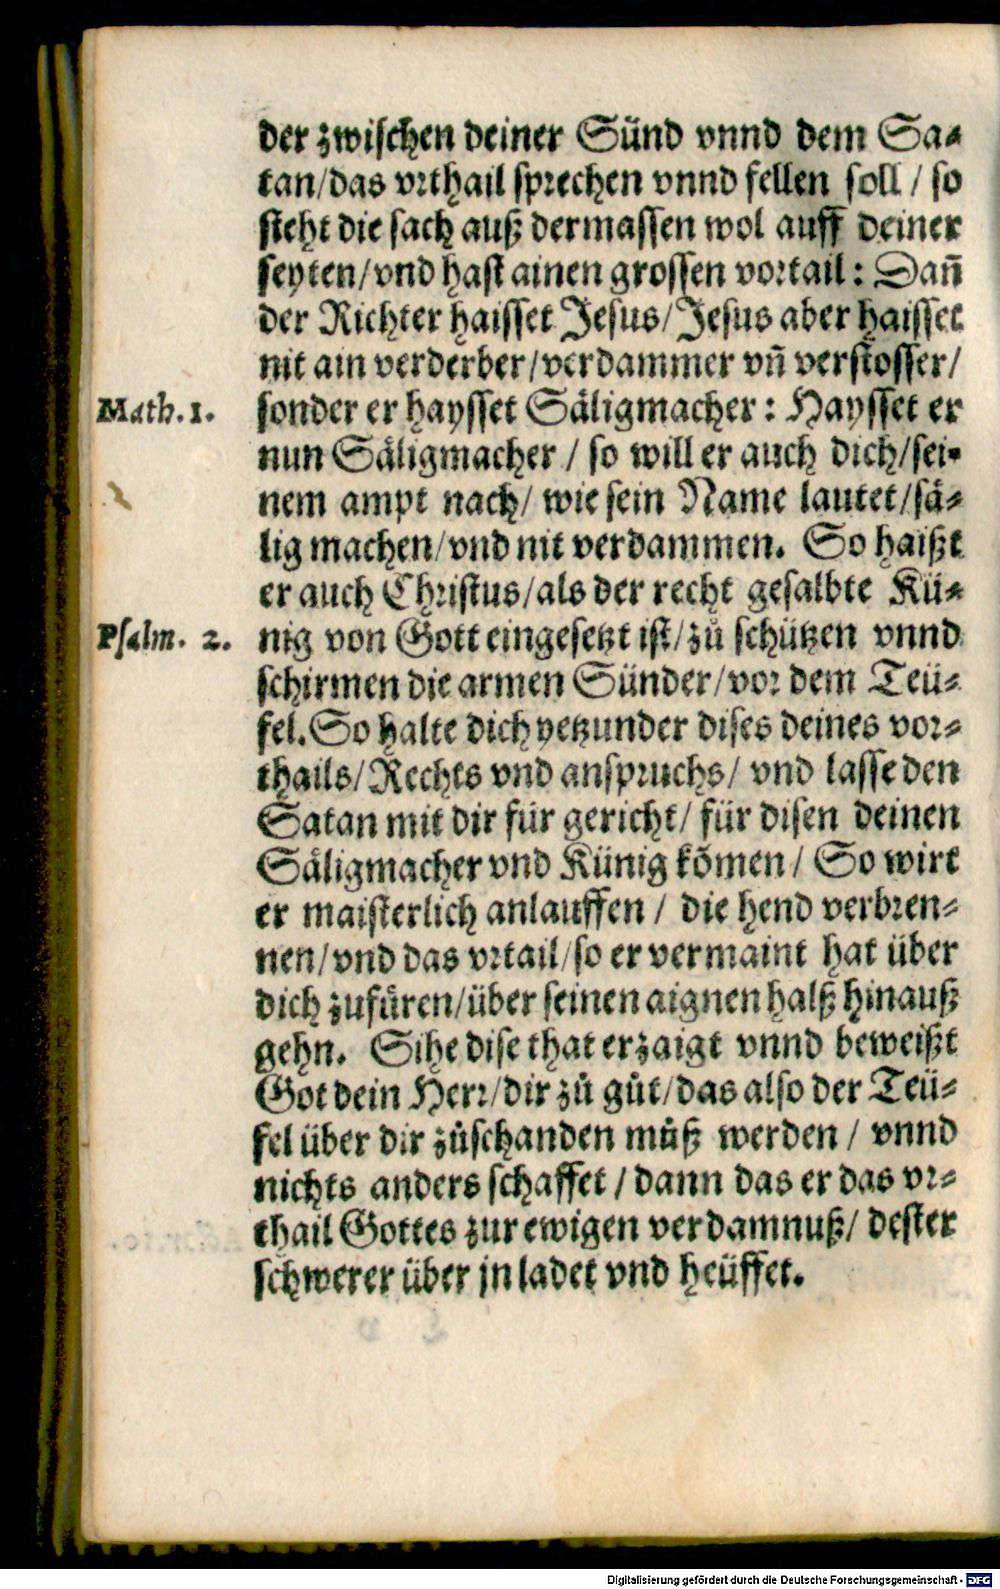 der zwischen deiner Sünd vnnd dem Sa⸗
tan/das vrthail sprechen vnnd fellen soll / so
steht die sach auß dermassen wol auff deiner
seyten/vnd hast ainen grossen vortail: Dañ
der Richter haisset Jesus/Jesus aber haisset
nit ain verderber/verdammer vñ verstosser/
Math. 1. sonder er haysset Säligmacher: Haysset er
nun Säligmacher / so will er auch dich/sei⸗
nem ampt nach/ wie sein Name lautet/sä⸗
lig machen/vnd nit verdammen. So haißt
er auch Christus/als der recht gesalbte Kü⸗
Psalm. 2. nig von Gott eingesetzt ist/zů schützen vnnd
schirmen die armen Sünder/vor dem Teü⸗
fel. So halte dich yetzunder dises deines vor⸗
thails/Rechts vnd anspruchs/ vnd lasse den
Satan mit dir für gericht/ für disen deinen
Säligmacher vnd Künig kõmen/ So wirt
er maisterlich anlauffen / die hend verbren⸗
nen/vnd das vrtail/so er vermaint hat über
dich zufüren/über seinen aignen halß hinauß
gehn. Sihe dise that erzaigt vnnd beweißt
Got dein Herr/dir zů gůt/das also der Teü⸗
fel über dir zůschanden můß werden / vnnd
nichts anders schaffet / dann das er das vr⸗
thail Gottes zur ewigen verdamnuß/ dester
schwerer über jn ladet vnd heüffet.
Digitalisierung gefördert durch die Deutsche Forschungsgemeinschaft - DFG